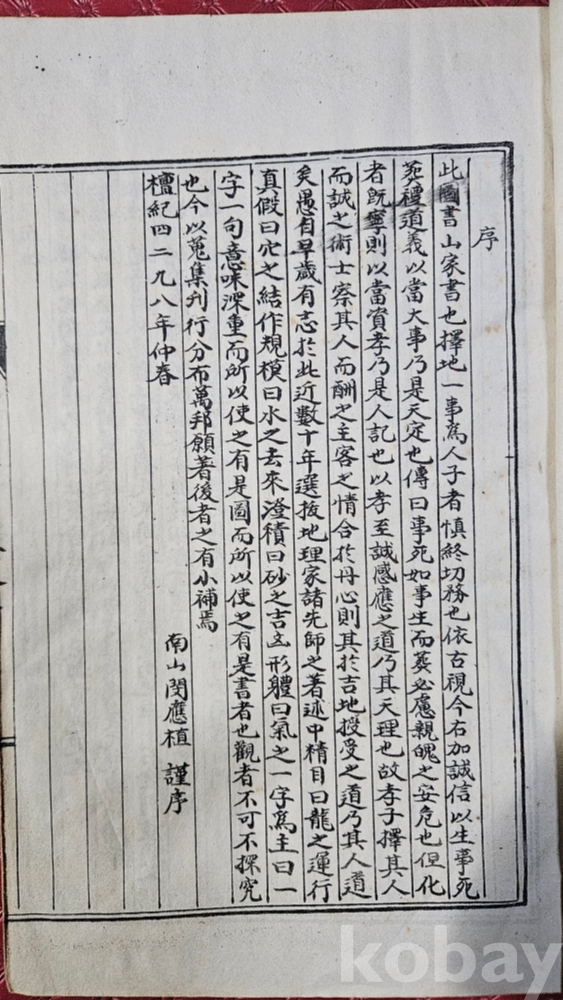 序
此圖書山家書也擇地一事爲人子者愼終切務也依古視今右加誠信以生事死
葬禮道義以當大事乃是天定也傳曰事死如事生而葬必慮親魄之安危也但化
者旣寧則以當資孝乃是人記也以孝至誠感應之道乃其天理也故孝子擇其人
而誠之術士察其人而酬之主客之情合於丹心則其於吉地授受之道乃其人道
矣愚自早歲有志於此近數十年選拔地理家諸先師之著述中精目曰龍之運行
真假曰穴之結作規模曰水之去來澄積曰砂之吉凶形體曰氣之一字爲主曰一
字一句意味深重而所以使之有是圖而所以使之有是書者也觀者不可不探究
也今以蒐集刊行分布萬邦願著後者之有小補焉
檀紀四二九八年仲春
南山閔應植 謹序
kobay